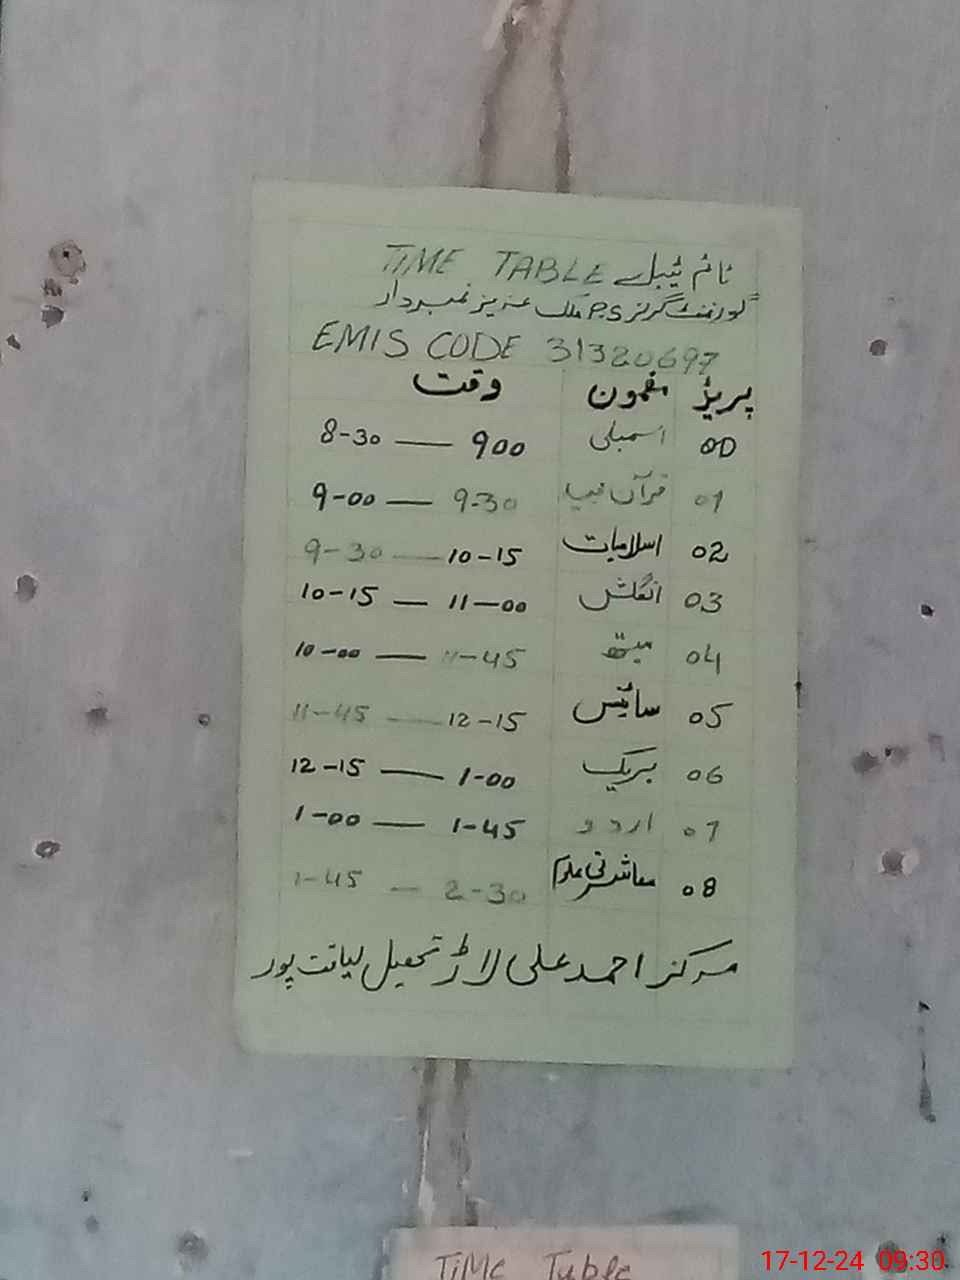 TIME TABLE ٹائم ٹیبل
گورنمنٹ گرلز P.S ملک عزیز نمبردار
EMIS CODE 31320697
پریڈ مضمون وقت
00 اسمبلی 8-30 — 900
01 قرآن 9-00 — 9-30
02 اسلامیات 9-30 — 10-15
03 انگلش 10-15 — 11-00
04 میتھ 10-00 — 11-45
05 سائنس 11-45 — 12-15
06 بریک 12-15 — 1-00
07 اردو 1-00 — 1-45
08 معاشرتی علوم 1-45 — 2-30
مرکز احمد علی لاڑ تحصیل لیاقت پور
TiMe Table
17-12-24 09:30